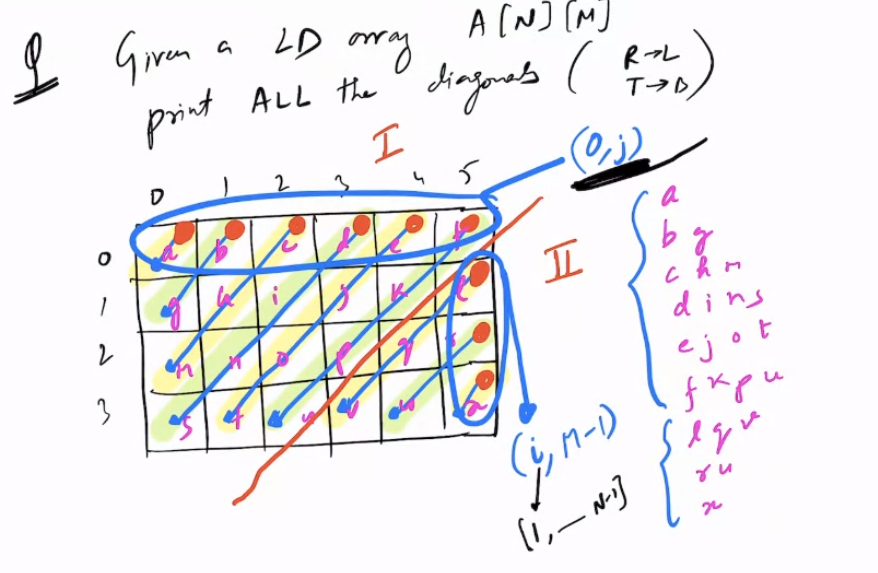 Q Given a 2D array A[N][M]
print ALL the diagonals ( R→L
T→B )
I
(0,j)
0 1 2 3 4 5
0 a b c d e f
1 g h i j k l
2 m n o p q r
3 s t u v w x
II
a
b g
c h m
d i n s
e j o t
f k p u
l q v
r w
x
(i, M-1)
[1, — N-1]